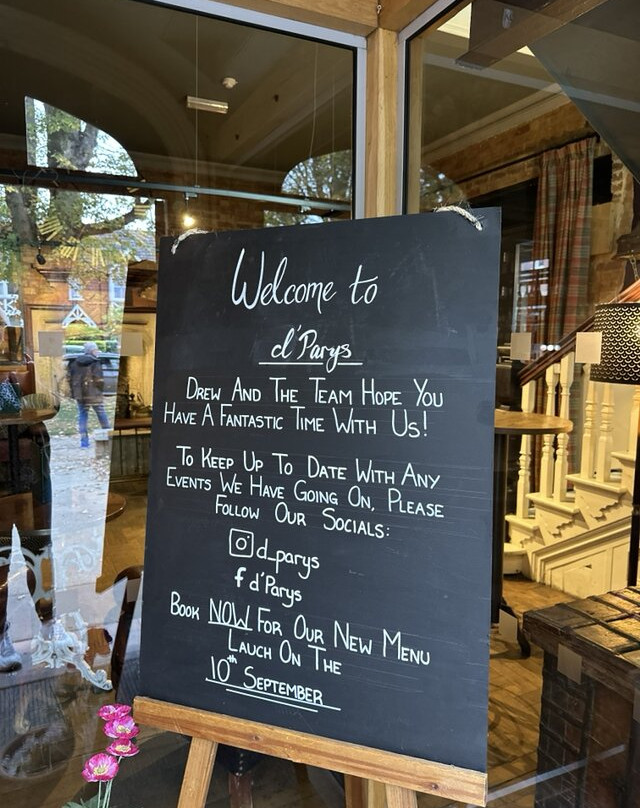 Welcome to
d'Parys
DREW AND THE TEAM HOPE YOU
HAVE A FANTASTIC TIME WITH US!
TO KEEP UP TO DATE WITH ANY
EVENTS WE HAVE GOING ON, PLEASE
FOLLOW OUR SOCIALS:
d_parys
f d'Parys
BOOK NOW FOR OUR NEW MENU
LAUCH ON THE
10th SEPTEMBER